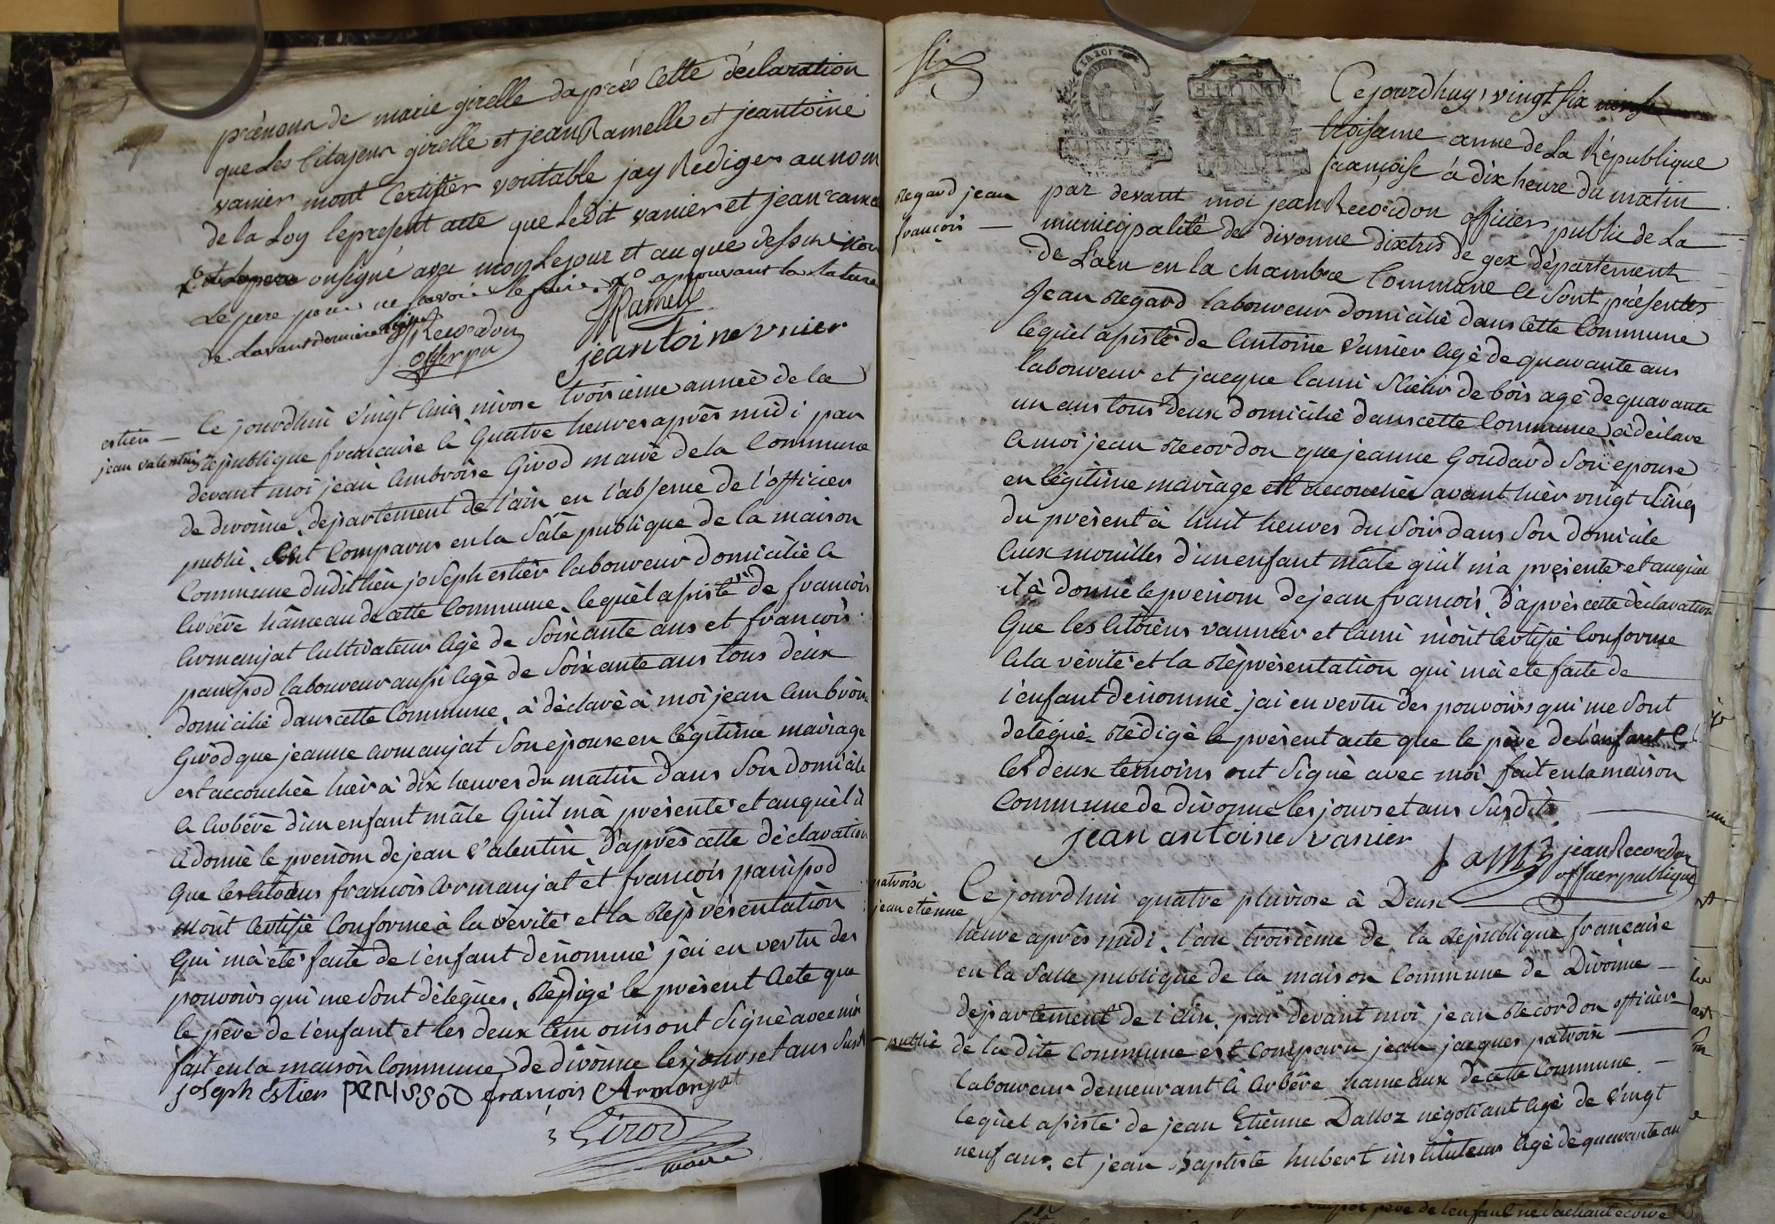 prénom de marie girelle daprés cette déclaration
que Les Citoyens girelle et jean Ramelle et jeantoine
vanier mont Certifier veritable jay Rediger au nom
de la Loy lepresent acte que Ledit vanier et jean ramel
onsigné avec moy Lejour et an que dessus
Le pere pour ne savoir le faire. approuvant la rature
de Lavant derniere ligne
JRamell
JRecordon
offier pu
jeantoine vnier
estier — Ce jourdhui vingt cinq nivose troisième année de la
jean valentin République francaise à Quatre heures après midi par
devant moi jean Ambroise Girod maire de la Commune
de divonne, département de l'ain en l'absence de l'officier
public, est Comparus en la Sale publique de la maison
Commune dudit lieu joseph estier laboureur domicilié a
Arbère hâmeau de cette Commune, lequel assisté de francois
Armanjat Cultivateur Agé de Soixante ans et francois
panissod laboureur aussi Agé de Soixante ans tous deux
domicilié dans cette Commune, à déclaré à moi jean Ambroise
Girod que jeanne armanjat Son épouse en légitime mariage
est accouchée hier à dix heures du matin dans Son domicile
a Arbère d'un enfant mâle Quil mà présenté et auquel il
a donné le prenom de jean Valentin D'après cette déclaration
Que les Citoiens francois Armanjat et francois panissod
mont Certifié Conforme à la vérité et la Représentation
Qui mà été faite de l'enfant dénommé j'ai en vertu des
pouvoirs qui me Sont délégues, Rédigé le présent Acte que
le père de l'enfant et les deux temoins ont Signé avec moi
fait en la maison Commune, de divonne les jours et ans Susdit
joseph Estier PANISSOD francois Armanjat
Girod
maire
six
Cejourdhuy vingt six
troisieme anne de La République
françoise à dix heure du matin
Regard jean par devant moi jean Recordon officier public de La
françois — municipalité de divonne dixtris de gex département
de Lain en la chambre Commune a Sont présentes
Jean Regard laboureur domicilié dans cette Commune
lequel assisté de Antoine Vanier Agé de quarante ans
laboureur et jacque lami Scieur de bois agé de quarante
un ans tous deux domicilié dans cette Commune à déclaré
a moi jean Recordon que jeanne Goudard Son épouse
en légitime mariage est accouchée avant hier vingt Cinq
du présent à huit heures du Soir dans Son domicile
aux mouilles d'un enfant mâle quil mà présenté et auquel
il à donné le prénom de jean francois, D'après cette déclaration
Que les Citoiens vannier et lami m'ont Certifié Conforme
a la vérité et la Représentation qui mà eté faite de
l'enfant dénommé. jai en vertu des pouvoirs qui me Sont
délégué, Rédigé le présent acte que le père de l'enfant &
les deux témoins ont Signé avec moi fait en la maison
Commune de divonne les jours et ans Susdits
jean antoine vanier
lamy jean Recordon
offier publique
patroix Ce jourdhui quatre pluviose à Deux
jean etienne heure après midi. l'an troisième de la République francaise
en la Salle publique de la maison Commune de Divonne —
département de l'ain, par devant moi jean Recordon officier
public de la dite Commune est comparu jean jacques patroix
laboureur demeurant à Arbère hameaux de cette Commune. —
lequel assisté de jean Etienne Dalloz négotiant agé de Vingt
neuf ans. et jean Baptiste hubert instituteur Agé de quarante an